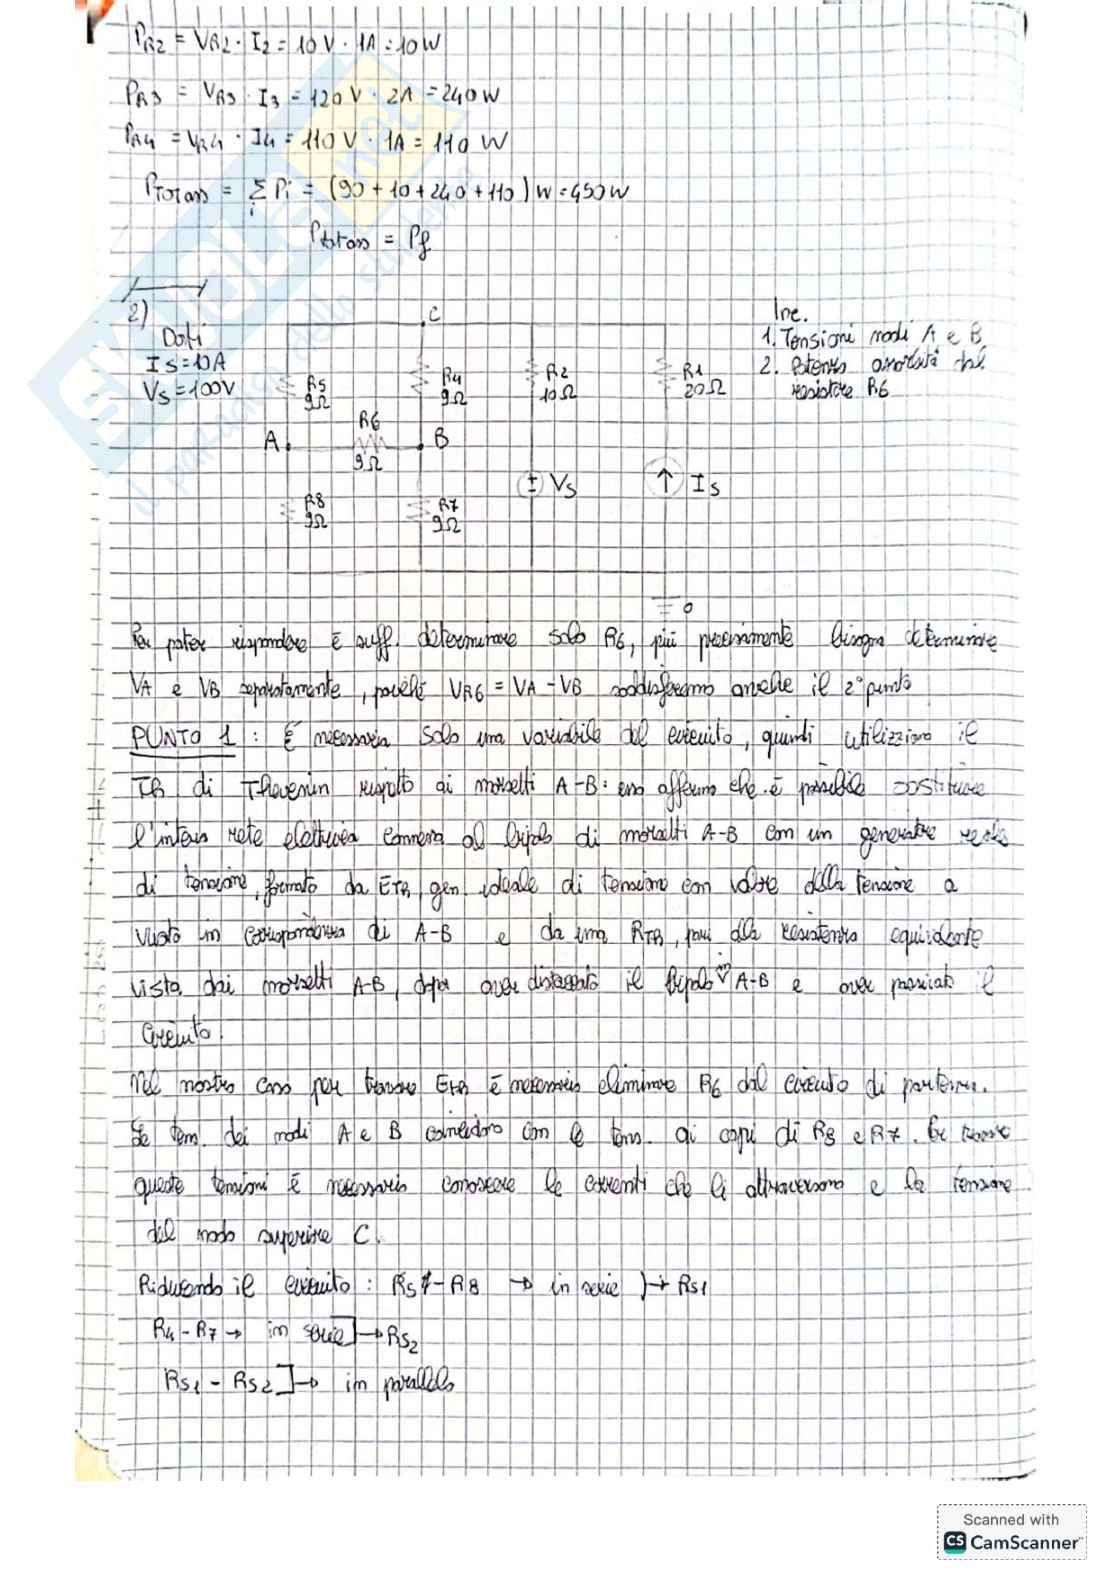 PR2 = VR2 · I2 = 10 V · 1A = 10 W
PR3 = VR3 · I3 = 120 V · 2A = 240 W
PR4 = VR4 · I4 = 110 V · 1A = 110 W
PTOT ass = Σ Pi = (90 + 10 + 240 + 110) W = 450 W
i
Ptot ass = Pf
2)
Dati
IS = 10A
VS = 100V
C
R5
9Ω
R4
9Ω
R2
10Ω
R1
20Ω
Inc.
1. Tensioni nodi A e B
2. Potenza assorbita dal
resistore R6
A
R6
9Ω
B
± VS
↑ IS
R8
9Ω
R7
9Ω
0
Per poter rispondere è suff. determinare solo R6, più precisamente bisogna determinare
VA e VB separatamente, poiché VR6 = VA - VB soddisferemo anche il 2° punto
PUNTO 1 : È necessaria solo una variabile del circuito, quindi utilizziamo il
Th di Thevenin rispetto ai morsetti A-B: esso afferma che è possibile sostituire
l'intera rete elettrica connessa al bipolo di morsetti A-B con un generatore reale
di tensione, formato da ETh, gen. ideale di tensione con valore della tensione a
vuoto in corrispondenza di A-B e da una RTh, pari alla resistenza equivalente
vista dai morsetti A-B, dopo aver distaccato il bipolo A-B e aver passivato il
circuito.
Nel nostro caso per trovare ETh è necessario eliminare R6 dal circuito di partenza.
Le tens. dei nodi A e B coincidono con le tens. ai capi di R8 e R7. Per trovare
queste tensioni è necessario conoscere le correnti che li attraversano e la tensione
del nodo superiore C.
Riducendo il circuito : R5 - R8 → in serie → RS1
R4 - R7 → in serie] → RS2
RS1 - RS2] → in parallelo
Scanned with
CS CamScanner